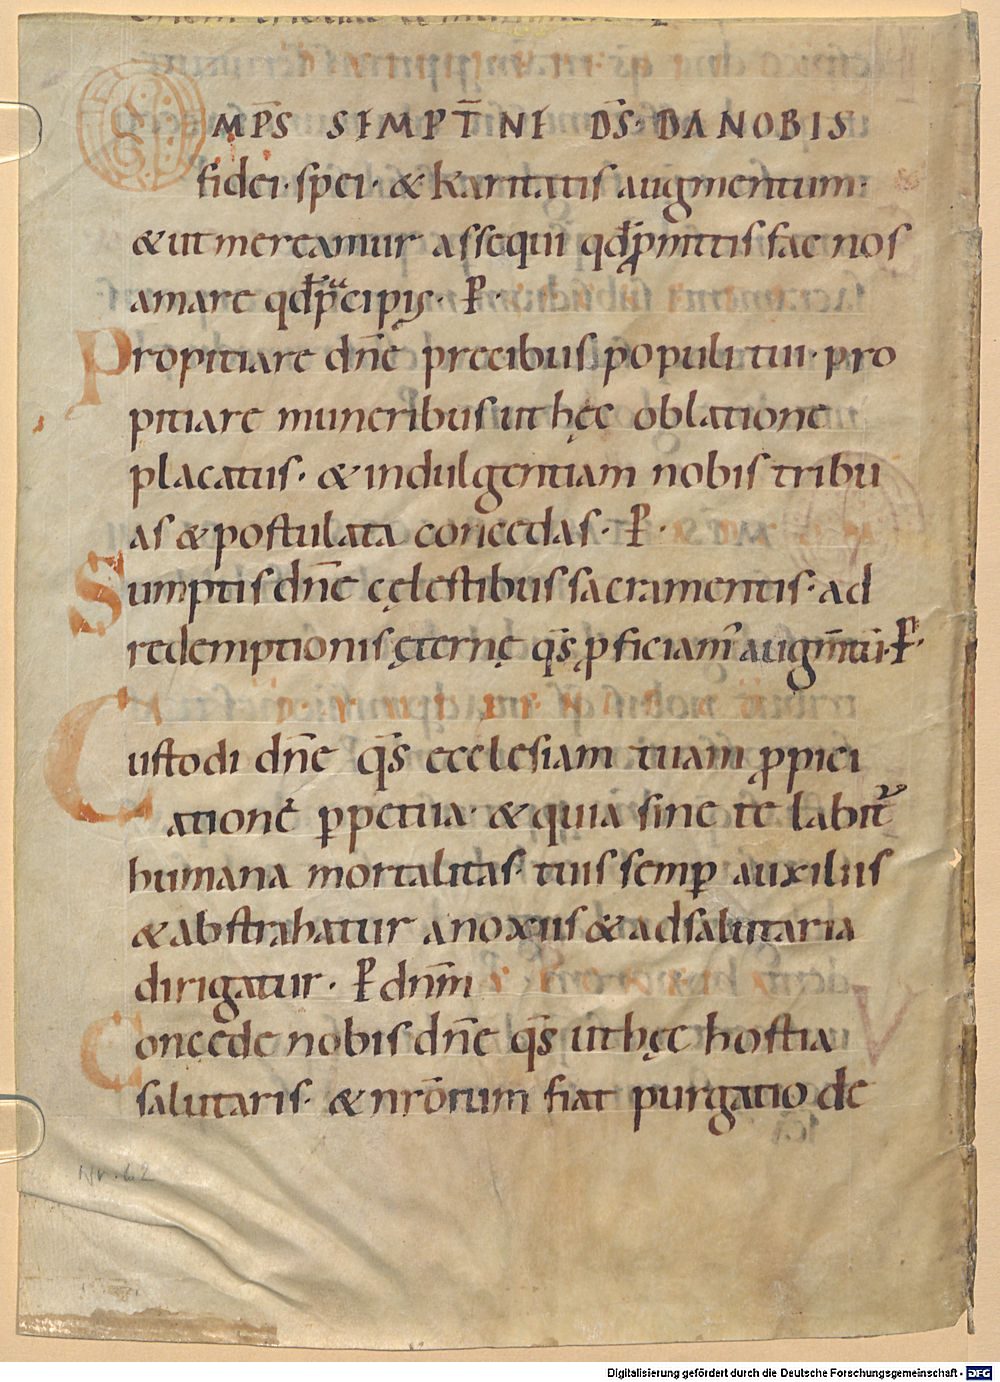 OMP̄S SEMPT̄NE D̄S· DA NOBIS
fidei· spei· & karitatis augmentum·
& ut mereamur assequi qđ ꝓmittis fac nos
amare qđ p̄cipis· P·
Propitiare dn̄e precibus populi tui· pro
pitiare muneribus ut hęc oblatione
placatus· & indulgentiam nobis tribu
as & postulata concedas· P·
Sumptis dn̄e cęlestibus sacramentis· ad
redemptionis ęternę q̄s ꝓficiam᾽ augm̄tū· P·
Custodi dn̄e q̄s ecclesiam tuam ꝓpici
atione ꝑpetua· & quia sine te labit᷑
humana mortalitas· tuis semꝑ auxiliis
& abstrahatur a noxiis & ad salutaria
dirigatur· P dnm̄
Concede nobis dn̄e q̄s ut hęc hostia
salutaris· & nrōrum fiat purgatio de
Nr. 62
Digitalisierung gefördert durch die Deutsche Forschungsgemeinschaft - DFG